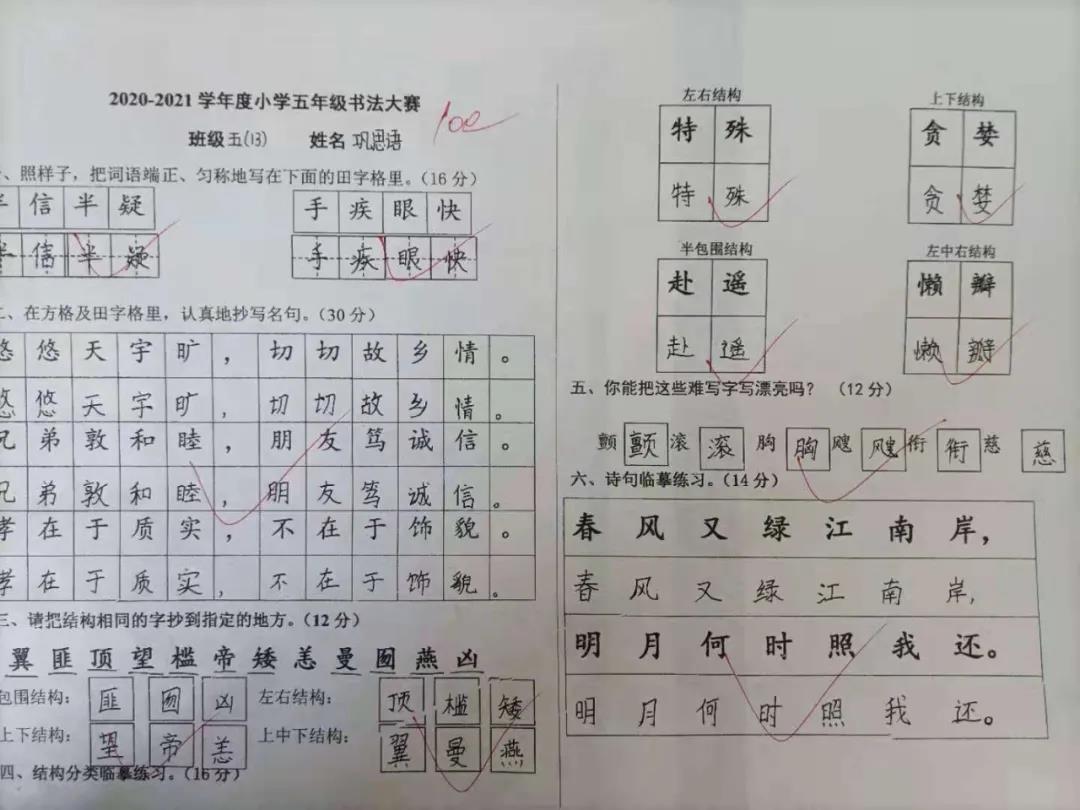 2020-2021 学年度小学五年级书法大赛
100
班级 五(13) 姓名 巩思语
、照样子，把词语端正、匀称地写在下面的田字格里。（16 分）
半 信 半 疑 手 疾 眼 快
半 信 半 疑 手 疾 眼 快
二、在方格及田字格里，认真地抄写名句。（30 分）
悠 悠 天 宇 旷 ， 切 切 故 乡 情 。
悠 悠 天 宇 旷 ， 切 切 故 乡 情 。
兄 弟 敦 和 睦 ， 朋 友 笃 诚 信 。
兄 弟 敦 和 睦 ， 朋 友 笃 诚 信 。
孝 在 于 质 实 ， 不 在 于 饰 貌 。
孝 在 于 质 实 ， 不 在 于 饰 貌 。
三、请把结构相同的字抄到指定的地方。（12 分）
翼 匪 顶 望 槛 帝 矮 恙 曼 囿 燕 凶
包围结构： 匪 囿 凶 左右结构： 顶 槛 矮
上下结构： 望 帝 恙 上中下结构： 翼 曼 燕
四、结构分类临摹练习。（16 分）
左右结构 上下结构
特 殊 贪 婪
特 殊 贪 婪
半包围结构 左中右结构
赴 遥 懒 瓣
赴 遥 懒 瓣
五、你能把这些难写字写漂亮吗？ （12 分）
颤 颤 滚 滚 胸 胸 飕 飕 衔 衔 慈 慈
六、诗句临摹练习。（14 分）
春 风 又 绿 江 南 岸，
春 风 又 绿 江 南 岸，
明 月 何 时 照 我 还。
明 月 何 时 照 我 还。